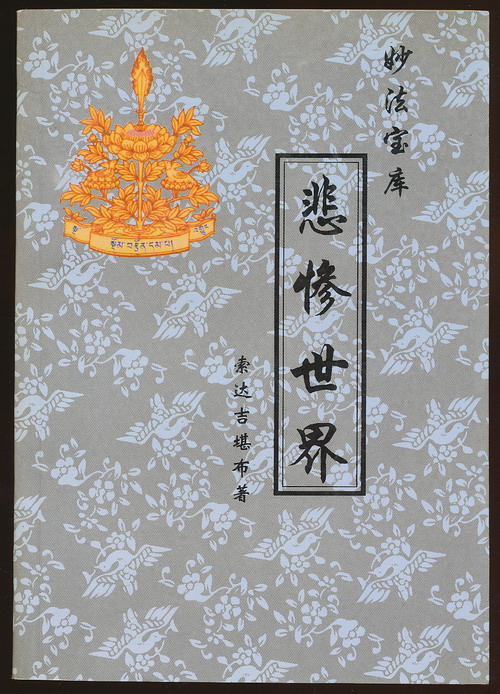 妙法宝库
悲惨世界
索达吉堪布著